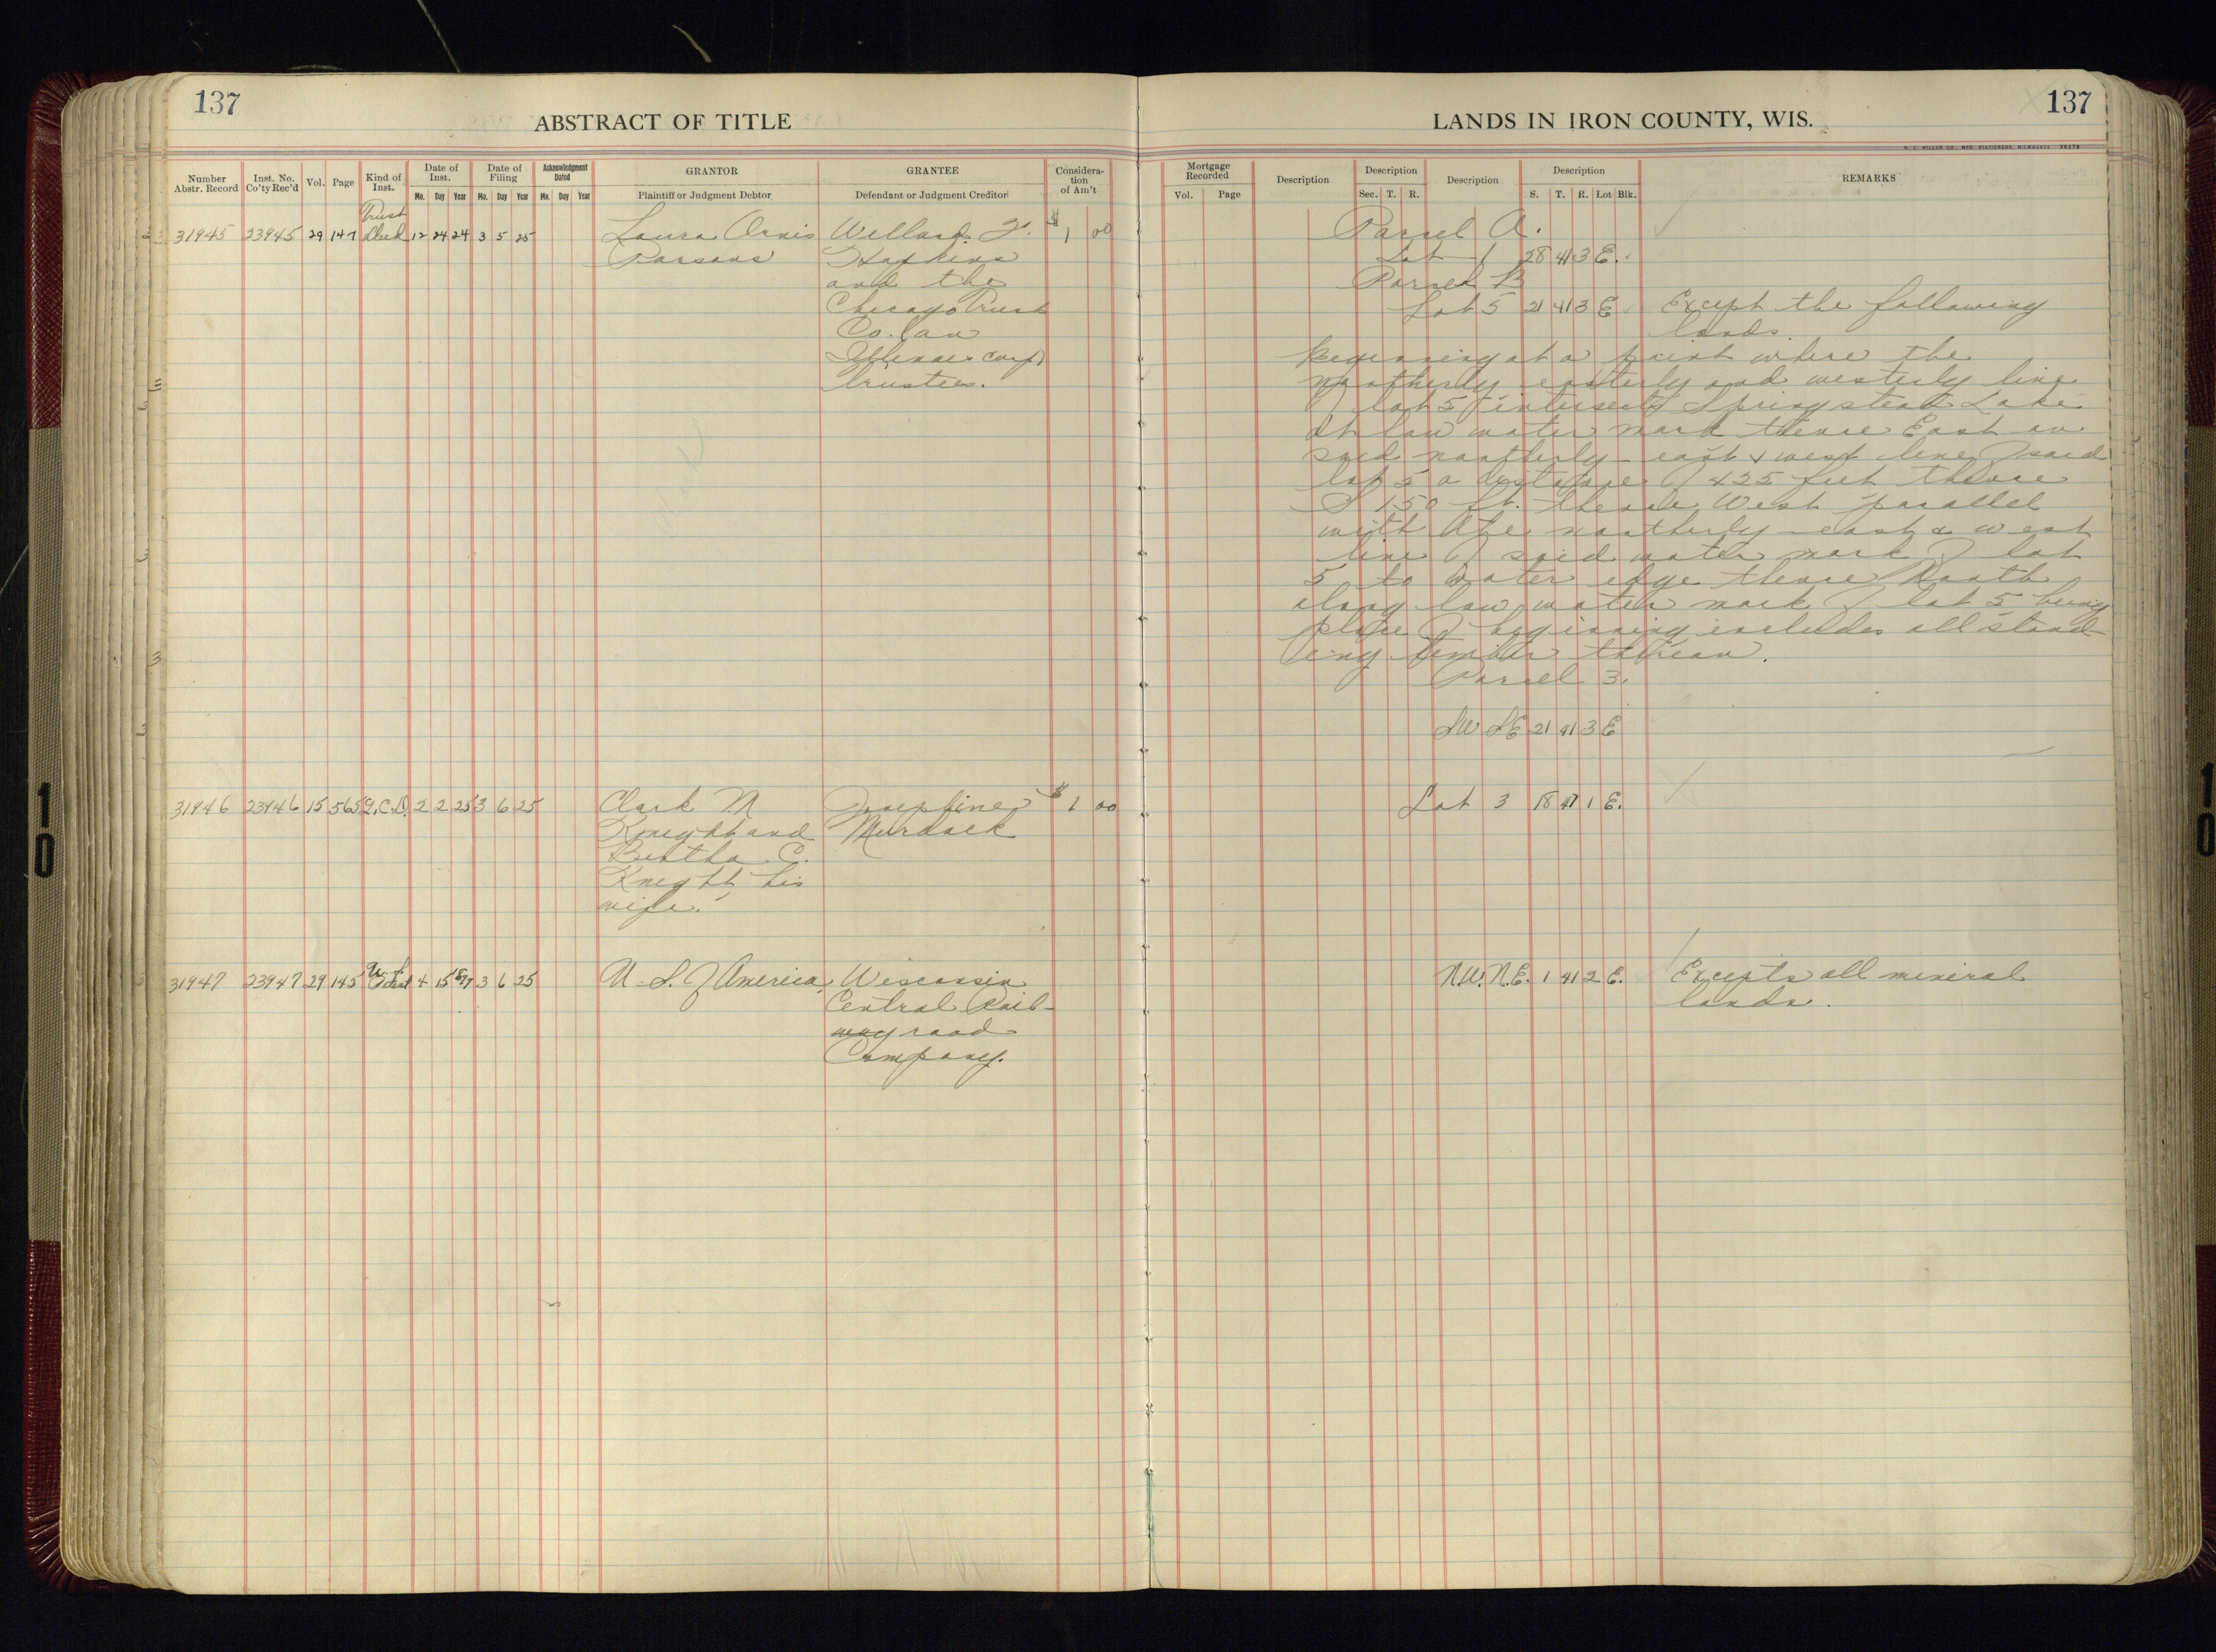 137
ABSTRACT OF TITLE
Number Abstr. Record
Inst. No. Co'ty Rec'd
Vol.
Page
Kind of Inst.
Date of Inst.
Mo. Day Year
Date of Filing
Mo. Day Year
Acknowledgment Dated
Mo. Day Year
GRANTOR
Plaintiff or Judgment Debtor
GRANTEE
Defendant or Judgment Creditor
Consideration of Am't
Trust
31945 23945 29 147 Deed 12 24 24 3 5 25 Laura Orvis Willard $ 1 00
Parsons Hopkins
and the
Chicago Trust
Co. (an
Illinois corp)
trustees.
31946 23946 15 565 Q.C.D. 2 2 25 3 6 25 Clark N Josephine $ 1 00
Knight and Murdock
Bertha C.
Knight his
wife.
31947 23947 29 145 4 15 3 6 25 U.S. of America Wisconsin
Central Rail-
way road
Company.
LANDS IN IRON COUNTY, WIS.
137
H. C. MILLER CO., MFG. STATIONERS, MILWAUKEE
Mortgage Recorded
Vol. Page
Description
Description
Sec. T. R.
Description
Description
S. T. R. Lot Blk.
REMARKS
Parcel A.
Lot 1 28 41 3 E.
Parcel B
Lot 5 21 41 3 E Except the following
lands
beginning at a point where the
northerly easterly and westerly line
of lot 5 intersects Springstead Lake
at low water mark thence East on
said northerly east & west line of said
lot 5 a distance of 425 feet thence
S 150 ft. thence West parallel
with the northerly east & west
line of said water mark of lot
5 to water edge thence North
along low water mark of lot 5 being
place of beginning includes all stand-
ing timber thereon.
Parcel 3.
SW SE 21 41 3 E
Lot 3 18 47 1 E.
N.W. N.E. 1 41 2 E. Excepts all mineral
lands.
10
10